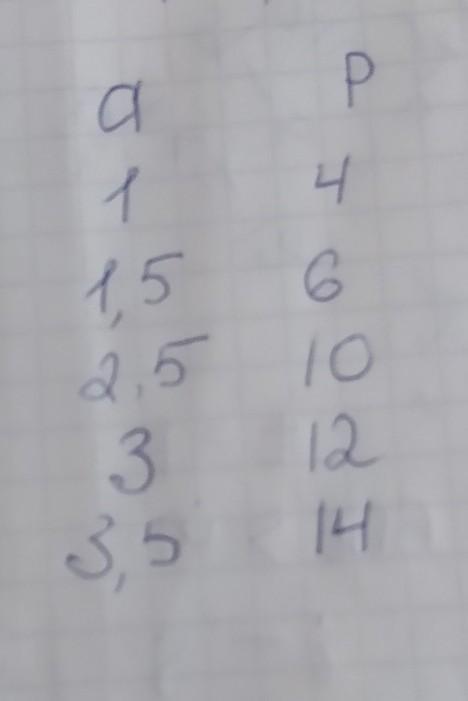 a P
1 4
1,5 6
2,5 10
3 12
3,5 14